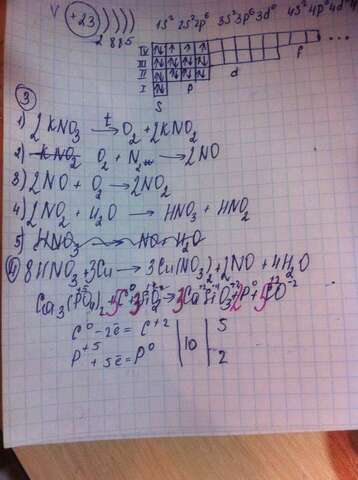 V +23 ) ) ) ) 1s² 2s²2p⁶ 3s²3p⁶3d⁰ 4s²4p⁰4d⁰4
2 8 8 5
IV
III
II
I
p d f
S
3
1) 2KNO₃ →t O₂ + 2KNO₂
2) O₂ + N₂ → 2NO
3) 2NO + O₂ → 2NO₂
4) 2NO₂ + H₂O → HNO₃ + HNO₂
5) HNO₃ → NO + H₂O
4) 8HNO₃ + 3Cu → 3Cu(NO₃)₂ + 2NO + 4H₂O
Ca₃(PO₄)₂ + 5C⁰ + 3SiO₂ → 3CaSiO₃ + 2P⁰ + 5CO
C⁰ - 2ē = C⁺² | | 5
P⁺⁵ + 5ē = P⁰ | 10 | 2